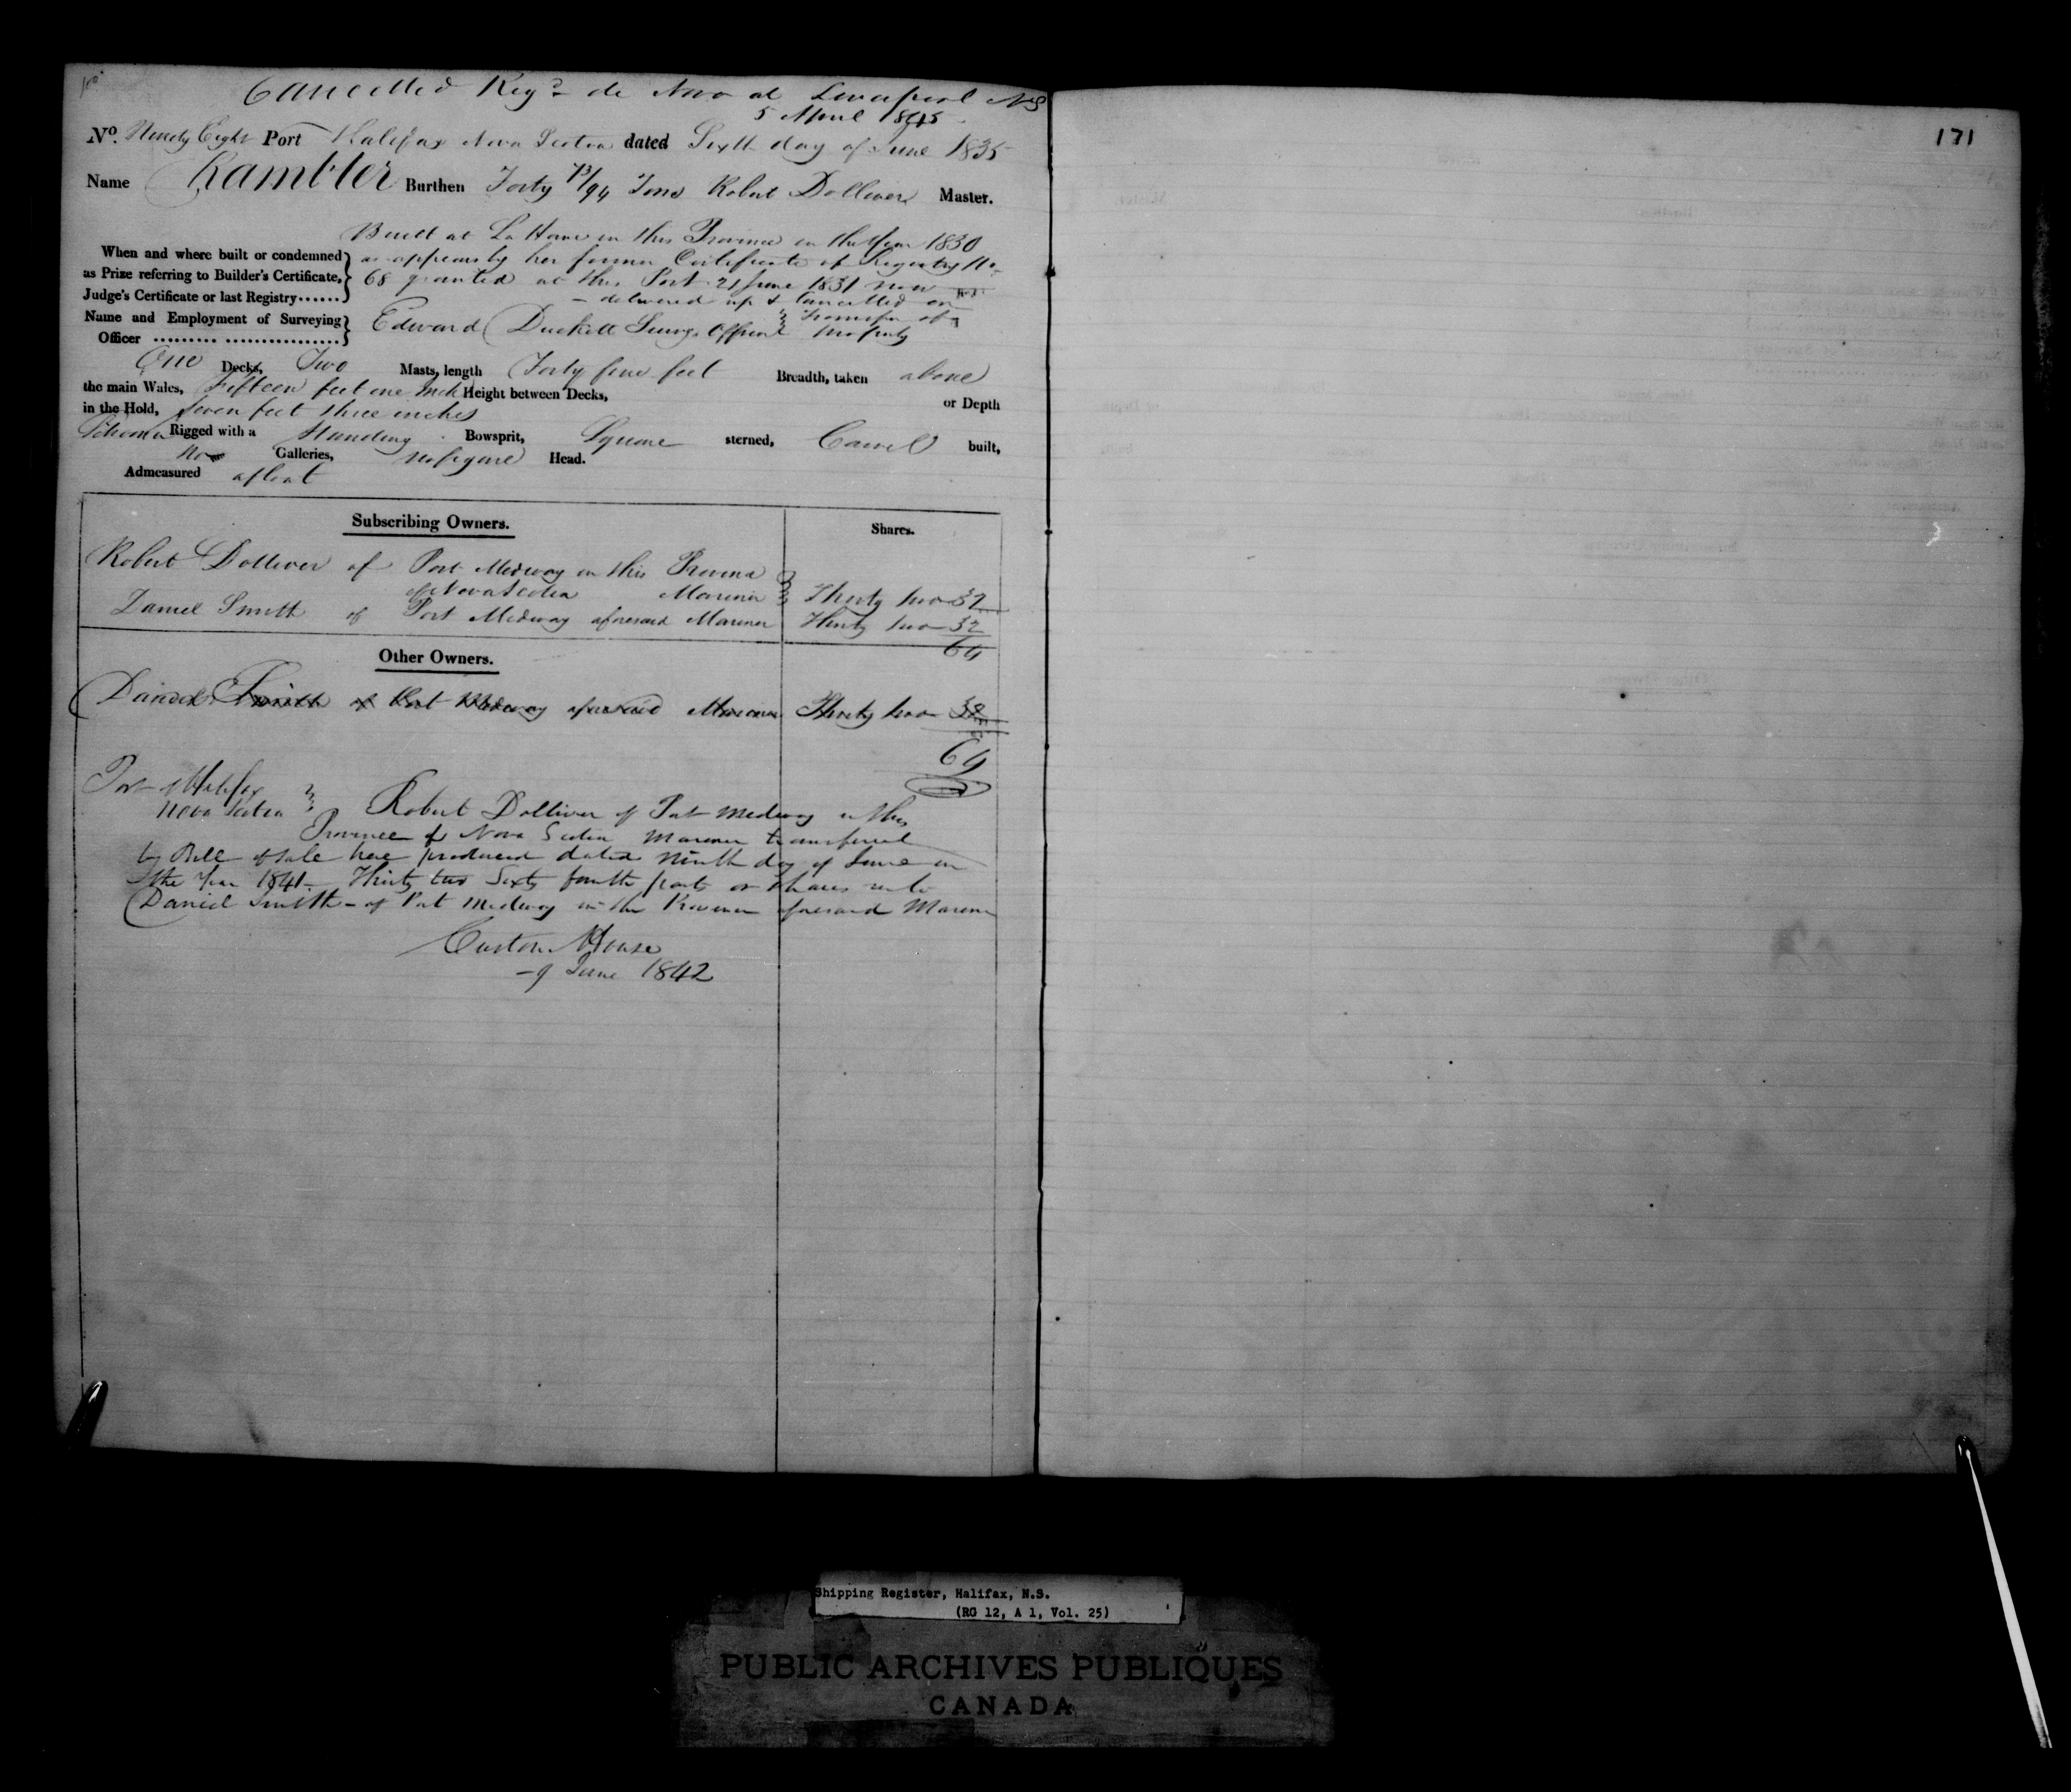 Cancelled Reg.d de Novo at Liverpool NS
5 April 1845
171
No. Ninety Eight Port Halifax Nova Scotia dated Sixth day of June 1835
Name Rambler Burthen Forty 73/94 Tons Robert Dolliver Master.
Built at La Have in this Province in the Year 1830
When and where built or condemned as appears by her former Certificate of Registry No.
as Prize referring to Builder's Certificate, 68 granted at this Port 21 June 1831 now
Judge's Certificate or last Registry...... delivered up & Cancelled on
Name and Employment of Surveying Edward Duckett Surv.g Officer transfer of
Officer ......... ................ property
One Decks, Two Masts, length Forty five feet Breadth, taken above
the main Wales, fifteen feet one Inch Height between Decks,
in the Hold, Seven feet three inches or Depth
Schooner Rigged with a Standing Bowsprit, Square sterned, Carvel built,
No Galleries, no figure Head.
Admeasured afloat
Subscribing Owners. Shares.
Robert Dolliver of Port Medway in this Province
of Nova Scotia Mariner Thirty two 32
Daniel Smith of Port Medway aforesaid Mariner Thirty two 32
64
Other Owners.
Daniel Smith of Port Medway aforesaid Mariner Thirty two 32
64
Port of Halifax
Nova Scotia Robert Dolliver of Port Medway in this
Province of Nova Scotia Mariner transferred
by Bill of Sale here produced dated ninth day of June in
the Year 1841 Thirty two Sixty fourth parts or shares unto
Daniel Smith of Port Medway in the Province aforesaid Mariner
Custom House
9 June 1842
Shipping Register, Halifax, N.S.
(RG 12, A 1, Vol. 25)
PUBLIC ARCHIVES PUBLIQUES
CANADA